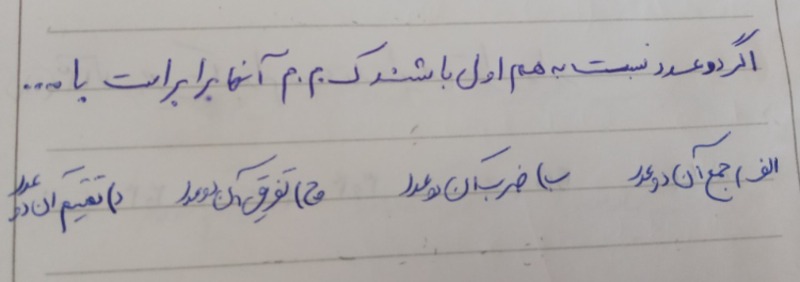 اگر دو عدد نسبت به هم اول باشند ک.م.م آنها برابر است با ....
الف) جمع آن دو عدد ب) ضرب آن دو عدد ج) تفریق آن دو عدد د) تقسیم آن دو عدد